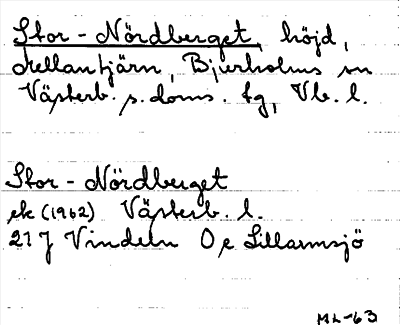 Stor-Nördberget, höjd,
Mellantjärn, Bjurholms sn
Västerb. s. doms. tg, Vb. l.
Stor-Nördberget
ek (1962) Västerb. l.
21 J Vindeln 0 e Lillarmsjö
ML-63